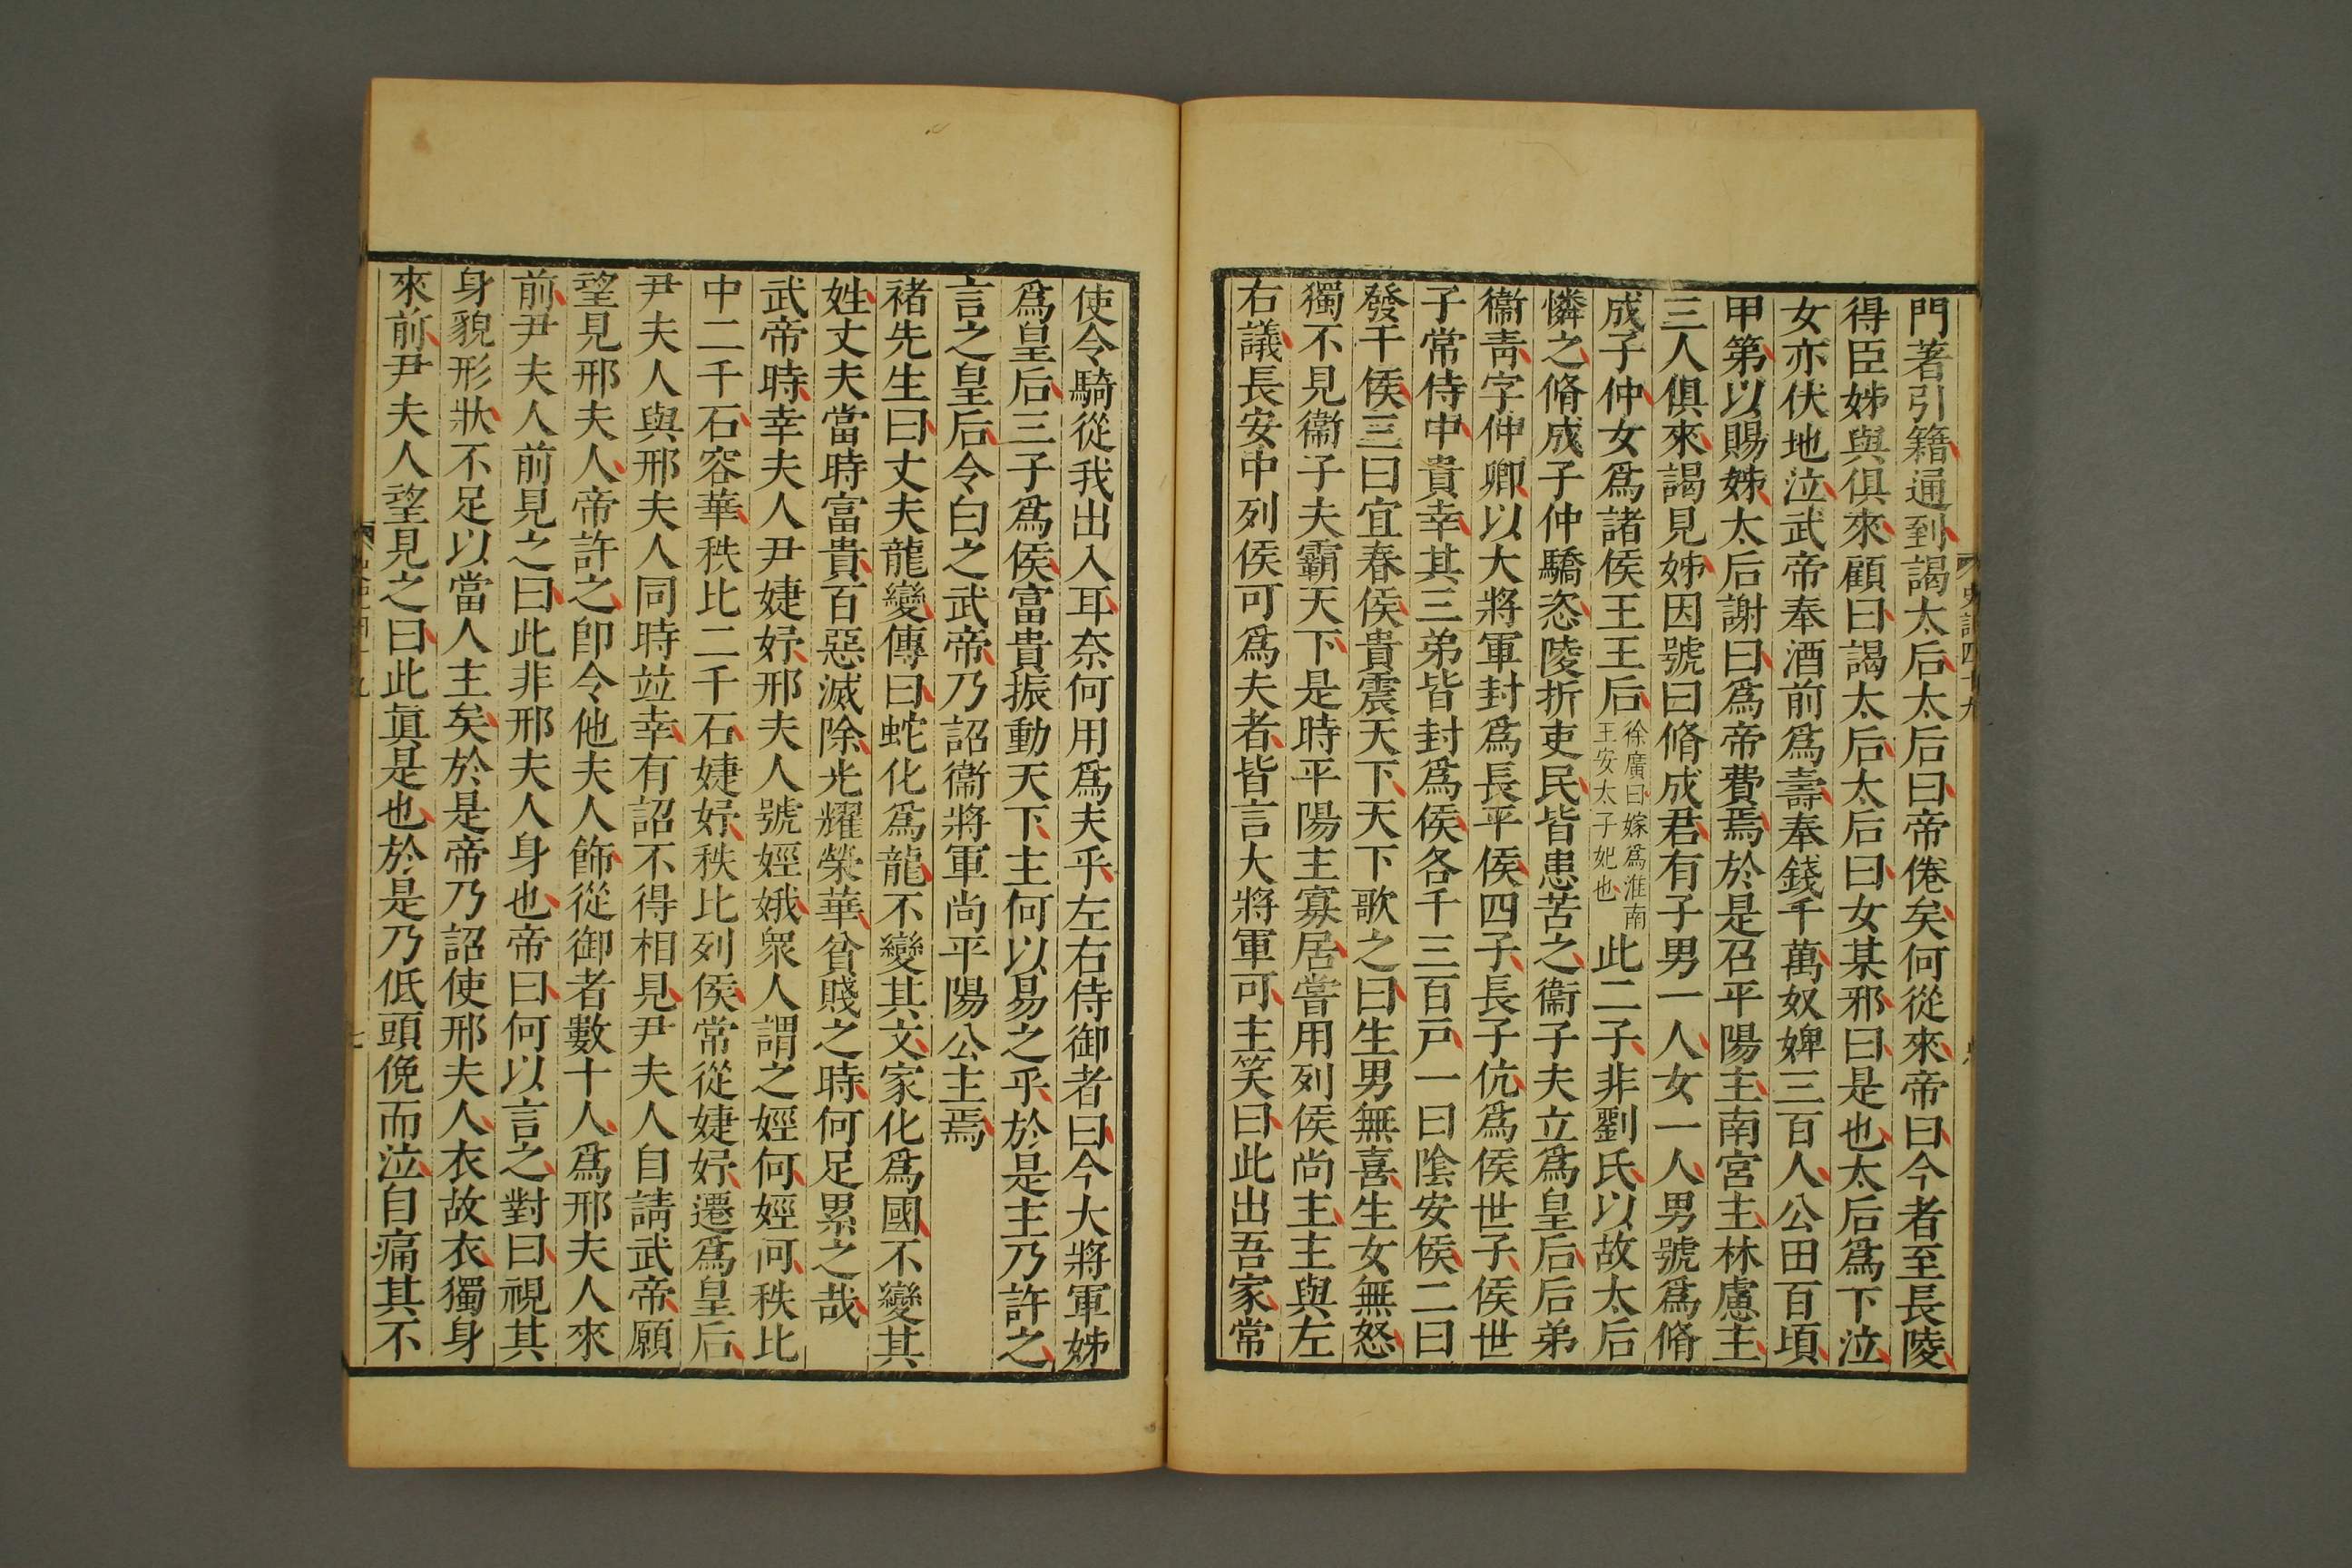 門著引籍通到謁太后太后曰帝倦矣何從來帝曰今者至長陵
得臣姊與俱來顧曰謁太后太后曰女某邪曰是也太后爲下泣
女亦伏地泣武帝奉酒前爲壽奉錢千萬奴婢三百人公田百頃
甲第以賜姊太后謝曰爲帝費焉於是召平陽主南宮主林慮主
三人俱來謁見姊因號曰脩成君有子男一人女一人男號爲脩
成子仲女爲諸侯王王后徐廣曰嫁爲淮南王安太子妃也此二子非劉氏以故太后
憐之脩成子仲驕恣陵折吏民皆患苦之衞子夫立爲皇后后弟
衞靑字仲卿以大將軍封爲長平侯四子長子伉爲侯世子侯世
子常侍中貴幸其三弟皆封爲侯各千三百戸一曰陰安侯二曰
發干侯三曰宜春侯貴震天下天下歌之曰生男無喜生女無怒
獨不見衞子夫霸天下是時平陽主寡居嘗用列侯尚主主與左
右議長安中列侯可爲夫者皆言大將軍可主笑曰此出吾家常
使令騎從我出入耳奈何用爲夫乎左右侍御者曰今大將軍姊
爲皇后三子爲侯富貴振動天下主何以易之乎於是主乃許之
言之皇后令白之武帝乃詔衞將軍尚平陽公主焉
褚先生曰丈夫龍變傳曰蛇化爲龍不變其文家化爲國不變其
姓丈夫當時富貴百惡滅除光耀榮華貧賤之時何足累之哉
武帝時幸夫人尹婕妤邢夫人號娙娥衆人謂之娙何娙何秩比
中二千石容華秩比二千石婕妤秩比列侯常從婕妤遷爲皇后
尹夫人與邢夫人同時竝幸有詔不得相見尹夫人自請武帝願
望見邢夫人帝許之卽令他夫人飾從御者數十人爲邢夫人來
前尹夫人前見之曰此非邢夫人身也帝曰何以言之對曰視其
身貌形狀不足以當人主矣於是帝乃詔使邢夫人衣故衣獨身
來前尹夫人望見之曰此眞是也於是乃低頭俛而泣自痛其不